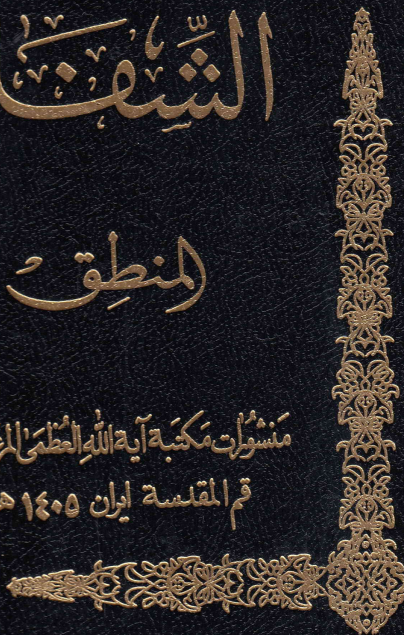 الشِّفَا
المنطِق
مَنشُورات مَكتبَة آية الله العُظمى المر
قم المقدسة ايران ١٤٠٥ ه